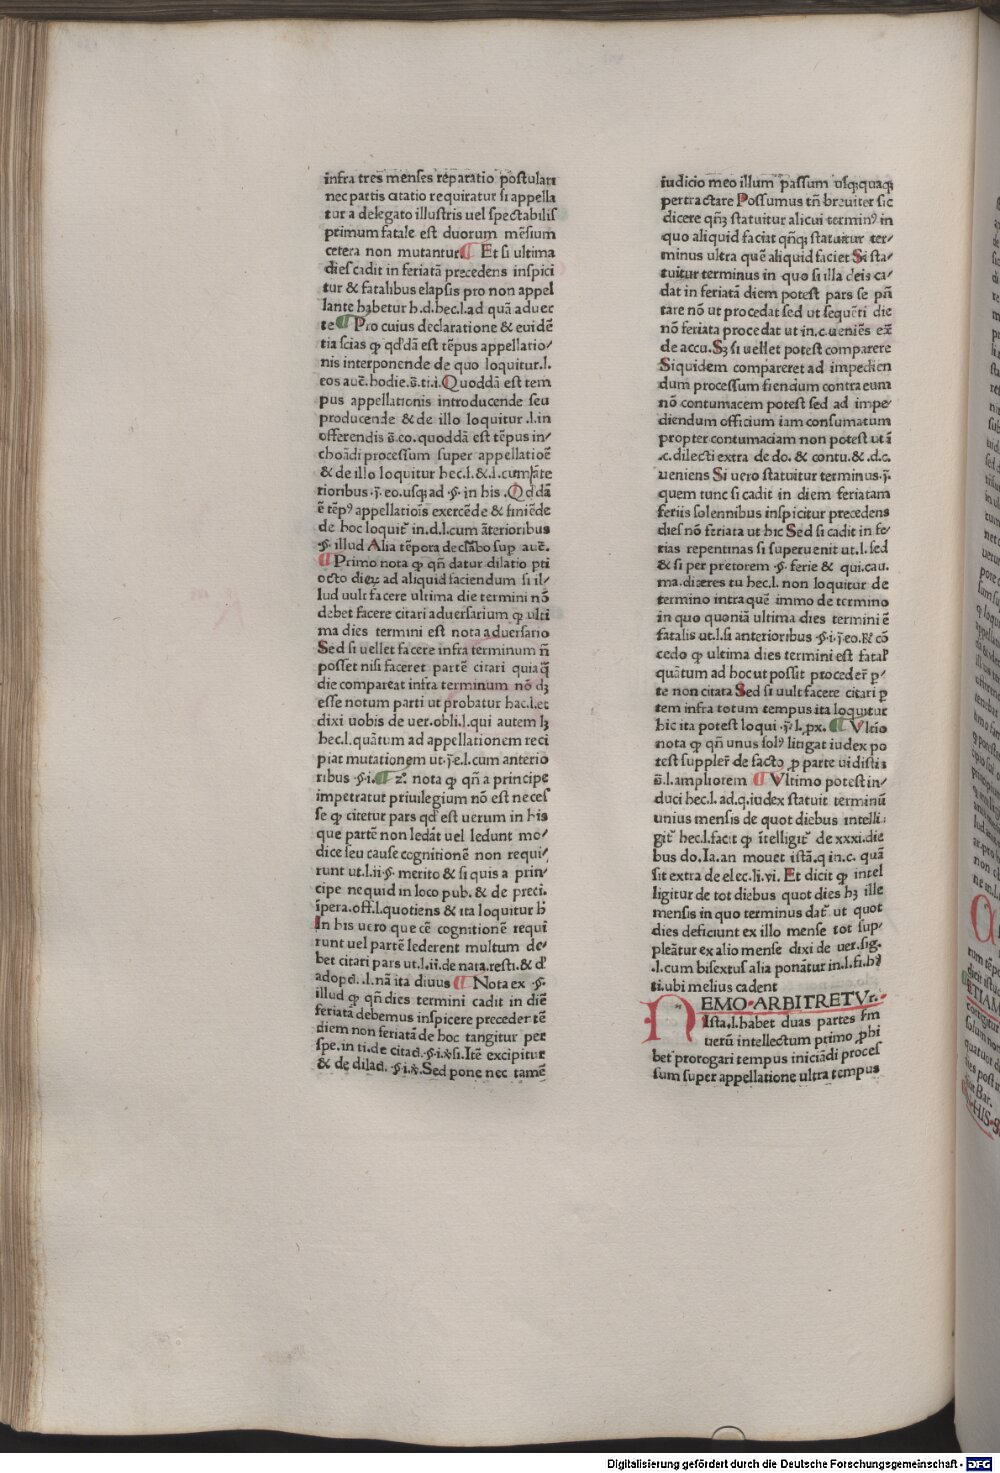 infra tres̄ menses reparatio postulari
nec partis citatio requiratur si appella
tur a delegato illustris uel spectabilis
primum fatale est duorum mēsium
cetera non mutantur. ¶ Et si ultima
dies cadit in feriatā precedens inspici
tur & fatalibus elapsis pro non appel
lante habetur h.d.hec.l.ad quā aduer
te ¶ Pro cuius declaratione & euidē
tia scias ꝙ qd'dā est tēpus appellatio/
nis interponende de quo loquitur.l.
eos aut̄.hodie.ō.ti.i. Quoddā est tem
pus appellationis introducende seu
producende & de illo loquitur .l.in
offerendis ō.co.quoddā est tēpus in/
choādi processum super appellatiōe
& de illo loquitur hec.l.&.l.cum ante
rioribus .j̄. eo.usꝗ ad .§. in his . Qd'dā
ē tēpꝰ appellatiōis exercēde & finiēde
de hoc loquit̄ in.d.l.cum āterioribus
.§. illud Alia tēpora declābo sup aut̄.
¶ Primo nota ꝙ qn̄ datur dilatio pti
octo dieꝝ ad aliquid faciendum si il/
lud uult facere ultima die termini nō
debet facere citari aduersarium ꝙ ulti
ma dies termini est nota aduersario
Sed si uellet facere infra terminum n̄
posset nisi faceret partē citari quia ꝗ
die compareat infra terminum nō dꝫ
esse notum parti ut probatur hac.l.et
dixi uobis de uer.obli.l.qui autem lꝫ
hec.l.quātum ad appellationem reci
piat mutationem ut.j̄.e.l.cum anterio
ribus .§.i. ¶ 2º. nota ꝙ qn̄ a principe
impetratur priuilegium nō est neces
se ꝙ citetur pars qd' est uerum in his
que partē non ledāt uel ledunt mo/
dice seu cause cognitionē non requi/
runt ut.l.ii.§. merito & si quis a prin/
cipe nequid in loco pub. & de preci.
īpera.off.l.quotiens & ita loquitur h̄
In his uero que cē cognitionē requi
runt uel partē lederent multum de/
bet citari pars ut.l.ii.de nata.resti.& d'
adopd. .l.nā ita diuus ¶ Nota ex .§.
illud ꝙ qn̄ dies termini cadit in diē
feriatā debemus inspicere preceder tē
diem non feriatā de hoc tangitur per
spe.in ti.de citad.§.i.ꝟsi.Itē excipitur
& de dilad. .§.i.ꝟ.Sed pone nec tamē
iudicio meo illum passum usꝗꝗuaꝗ
pertractare Possumus tn̄ breuiter sic
dicere qn̄ꝫ statuitur alicui terminꝰ in
quo aliquid faciat qn̄ꝗ statuitur ter/
minus ultra quē aliquid faciet Si sta/
tuitur terminus in quo si illa deis ca/
dat in feriatā diem potest pars se pn̄
tare nō ut procedat sed ut sequēti die
nō feriata procedat ut in.c.ueniēs ex̄
de accu. Sꝫ si uellet potest comparere
Siquidem compareret ad impedien
dum processum fiendum contra eum
nō contumacem potest sed ad impe/
diendum officium iam consumatum
propter contumaciam non potest ut ī
.c.dilecti extra de do. & contu.&.d.c.
ueniens Si uero statuitur terminus.j̄.
quem tunc si cadit in diem feriatam
feriis solennibus inspicitur precedens
dies nō feriata ut hic Sed si cadit in fe/
rias repentinas si superuenit ut.l.sed
& si per pretorem .§. ferie & qui.cau.
ma.diceres tu hec.l. non loquitur de
termino intra quē immo de termino
in quo quoniā ultima dies termini ē
fatalis ut.l.si anterioribus .§.i.j̄.eo.℞ cō
cedo ꝙ ultima dies termini est fatal'
quātum ad hoc ut possit proceder̄ p̱/
te non citata Sed si uult facere citari p̱
tem infra totum tempus ita loquitur
hic ita potest loqui .j̄. l. px. ¶ Vltio
nota ꝙ qn̄ unus solꝰ litigat iudex po
test suppler̄ de facto ꝓ parte ui disti ī
ō.l.ampliorem ¶ Vltimo potest in/
duci hec.l.ad.q.iudex statuit terminū
unius mensis de quot diebus intelli:
git̄ hec.l.facit ꝙ ītelligit̄ de xxxi.die
bus do.Ia.an mouet istā.q.in.c. quā
sit extra de elec.li.vi. Et dicit ꝙ intel
ligitur de tot diebus quot dies hꝫ ille
mensis in quo terminus dat̄ ut quot
dies deficiunt ex illo mense tot sup/
pleātur ex alio mense dixi de uer.sig.
.l.cum bisextus alia ponātur in.l.fi.hꝰ
ti.ubi melius cadent
NEMO ARBITRETVr.
Ista.l.habet duas partes s'm
uerū intellectum primo ꝓhi
bet prorogari tempus iniciādi proces
sum super appellatione ultra tempus
Digitalisierung gefördert durch die Deutsche Forschungsgemeinschaft - DFG